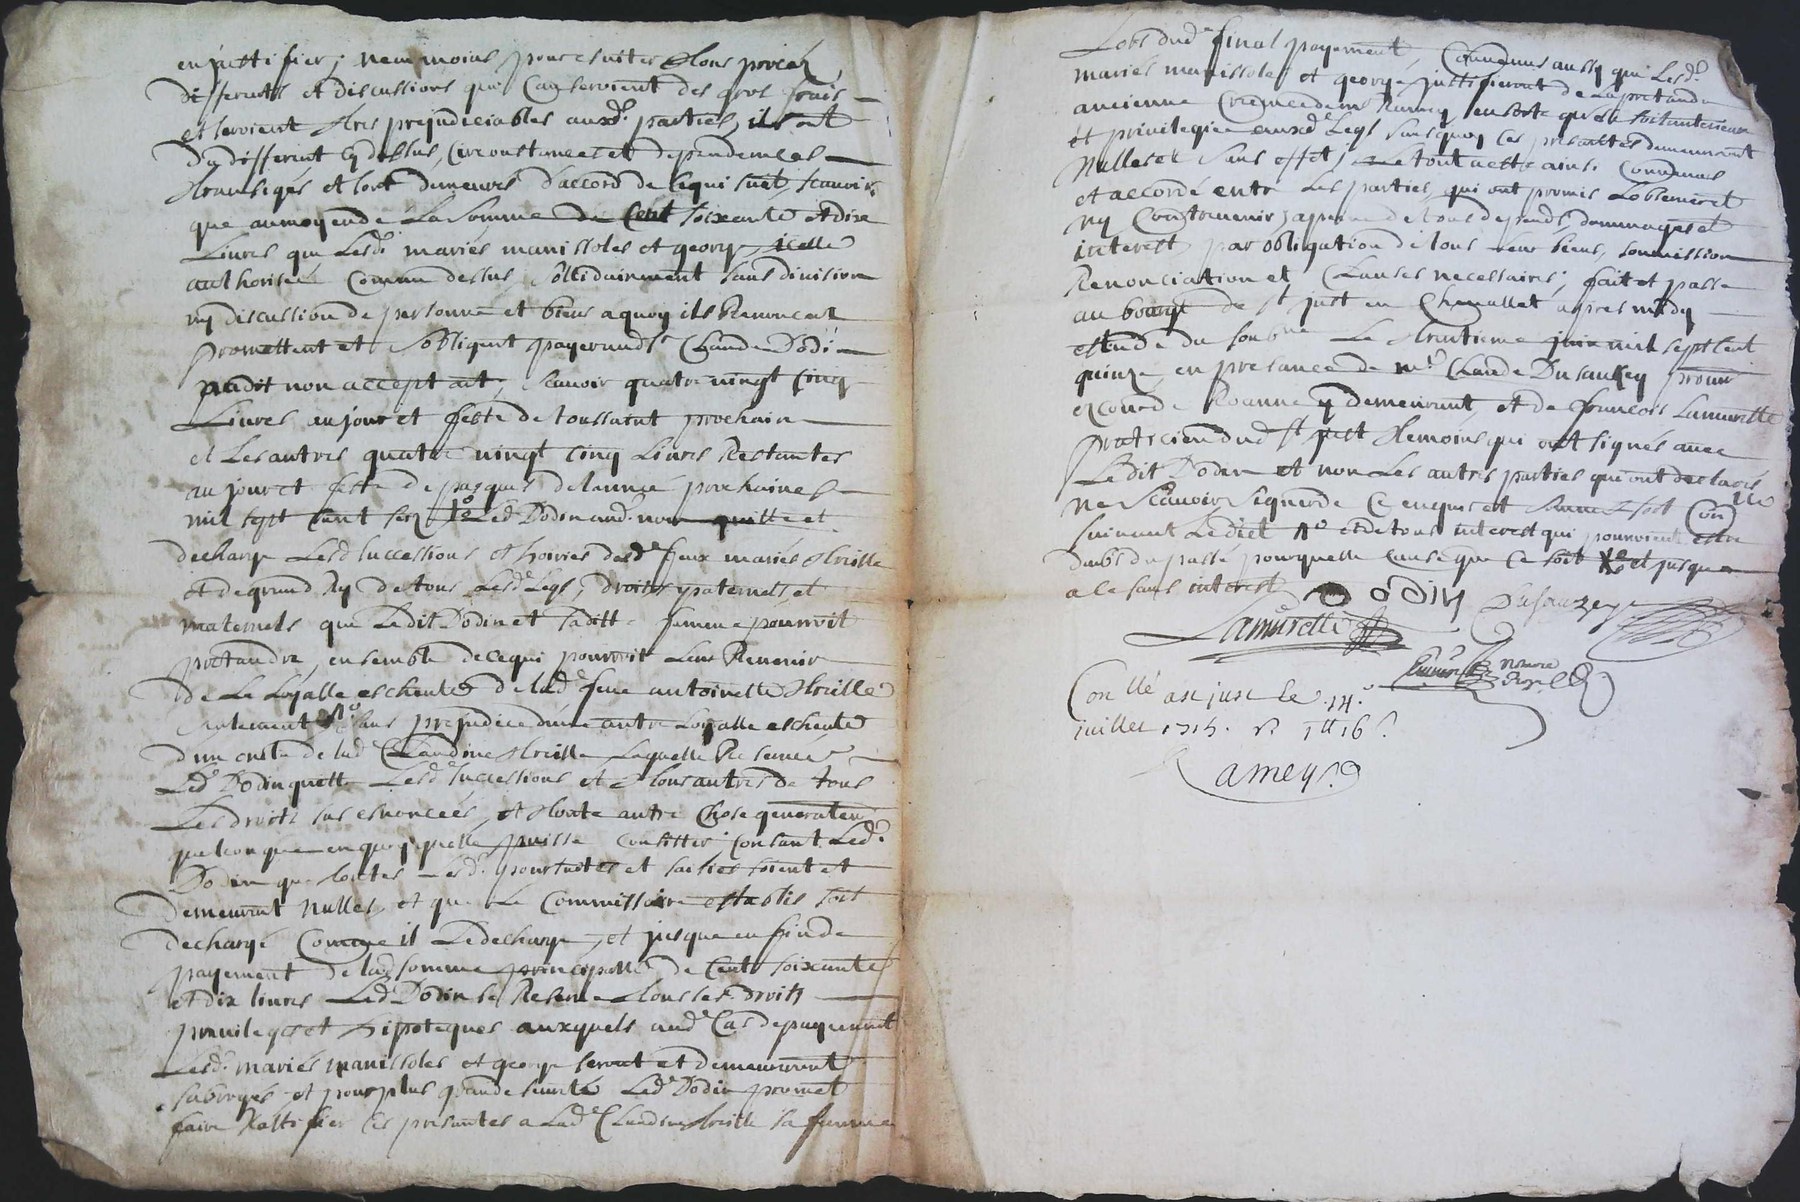 en justifier, neanmoins pour esuiter tous procez
differents et discussions qui causeroient des gros frais
et seroient tres prejudiciables auxd. parties, ils ont
du different cy dessus, circonstances et dependences
transigés et sont demeurés d'accord de ce qui suit, scauoir
que au moyen de la somme de cent soixante et dix
liures que lesd. mariés manissoles et george icelle
authorisée comme dessus sollidairement sans diuision
ny discussion de personne et biens a quoy ils renoncent
promettent et s'obligent payer aud. Claude Dodin
audit nom acceptant, scauoir quatre vingt cinq
liures au jour et feste de toussaint prochain
et les autres quatre vingt cinq liures restantes
au jour et feste de pasques de lannée prochaine
mil sept cent seize led. Dodin aud. nom quitte et
decharge lesd. successions et hoiries desd. feux mariés treille
et degrand Ry de tous lesd. legs, droits paternels, et
maternels que ledit Dodin et sadite femme pourroit
pretandre, ensemble de ce qui pourroit leur reuenir
de le loyalle escheute de lad. feue antoinette treille
seulement sans prejudice d'une autre loyalle escheute
lad. Claudine treille laquelle reserué
led. Dodin quitte lesd. successions et tous autres de tous
les droits sus enoncées, et toute autre chose generalem
quelconque en quoy quelle puisse consister, consant led.
Dodin que toutes lesd. poursuites et saisies soient et
demeurent nulles, et que le commissaire establis soit
dechargé comme il le decharge, et jusque en fin de
payement de lad. somme principalle de cent soixante
et dix liures led. Dodin se reserue tous ses droits
priuileges et hipoteques auxquels aud. cas de payement
lesd. mariés manissoles et george seront et demeureront
subrogés et pour plus grande seurté led. Dodin promet
faire rattifier ces presentes a lad. Claudine treille sa femme
lors dud. final payement, conuenus aussy que lesd.
mariés manissoles et george justifieront de la pretandue
ancienne en sorte qu'elle soit anterieure
et priuilegiée auxd. legs sans quoy ces presantes demeureront
nulles et sans effet, le tout a esté ainsi conuenus
et accordé entre les parties qui ont promis l'obseruer et
ny contreuenir a peine de tous depends, dommages et
interest par obligation de tous leur biens, soumission
renonciation et clauses necessaires, fait et passé
au bourg de st just en Cheuallet apres midy
estude du soubné le trantieme juin mil sept cent
quinze en presance de mr. Claude Dusauzey procur
es cour de Roanne y demeurant, et de francois Lamurette
praticien dud. st just temoins qui ont signés auec
ledit Dodin et non les autres parties qui ont declaré
ne scauoir signer de ce enquis et
suiuant ledict et de tous interest qui pourroient estre
deubs du passé pour quelle cause que ce soit et jusque
a ce sans interest
Dodin Dusauzey
Lamurette
notaire
Con llé a st just le 14.
juillet 1715.
Rameys